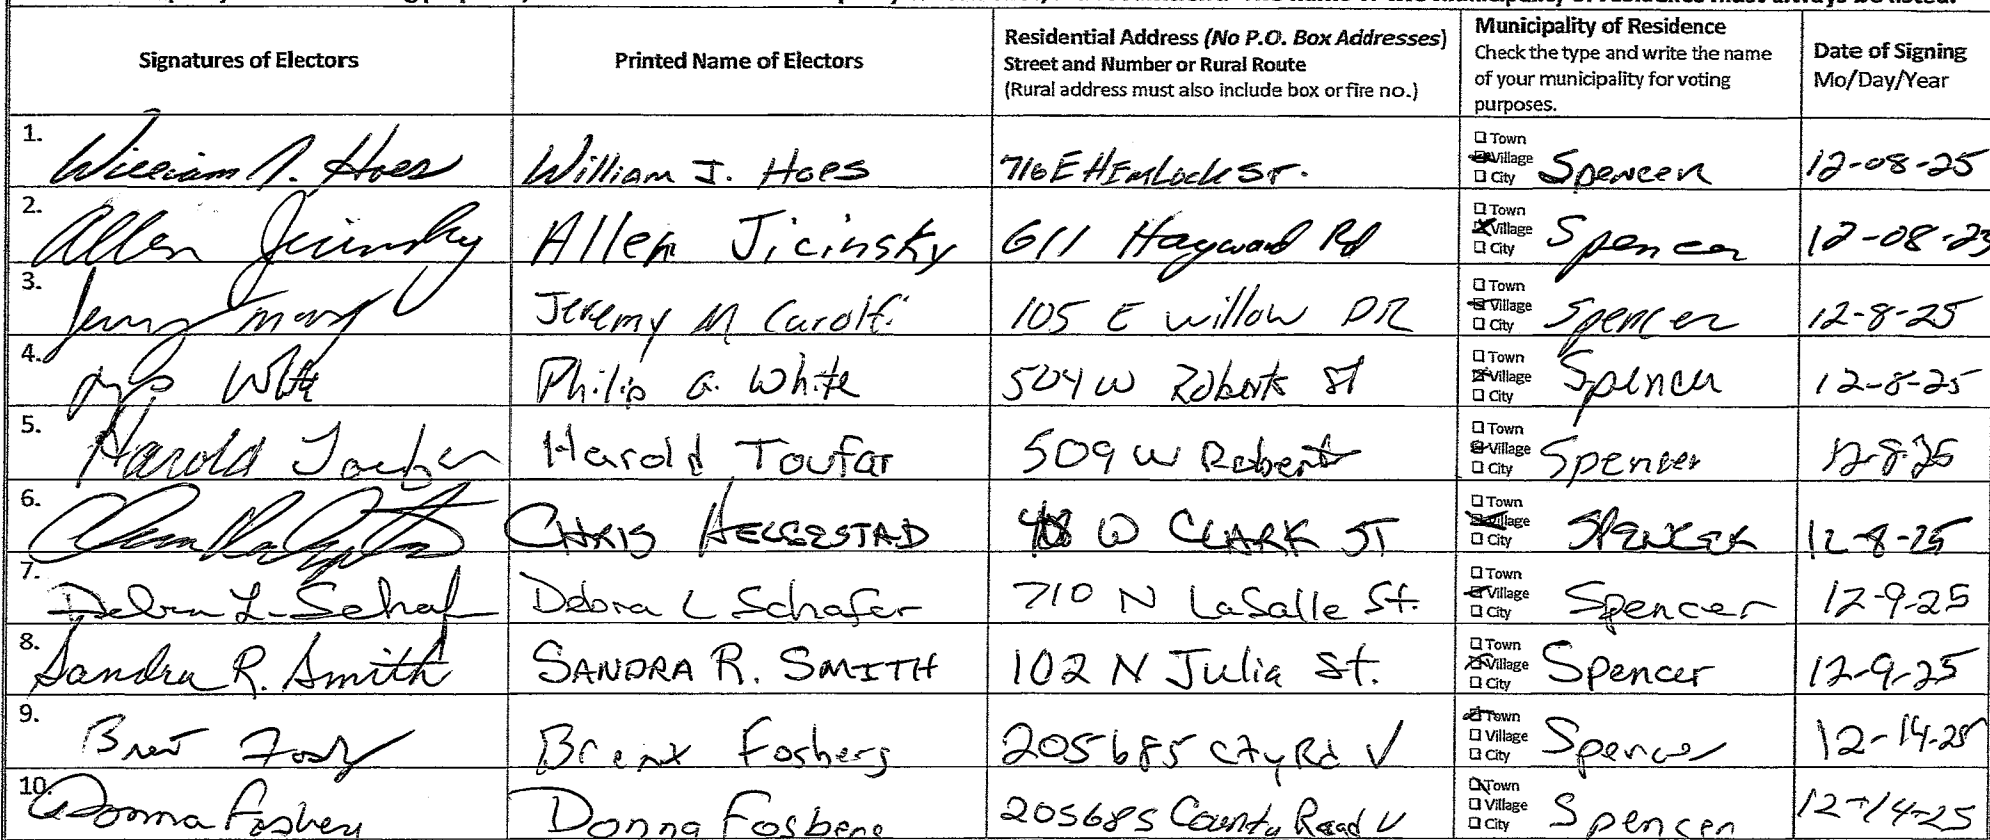 Signatures of Electors
Printed Name of Electors
Residential Address (No P.O. Box Addresses)
Street and Number or Rural Route
(Rural address must also include box or fire no.)
Municipality of Residence
Check the type and write the name
of your municipality for voting
purposes.
Date of Signing
Mo/Day/Year
1. William J. Hoes William J. Hoes 716 E HEmLock ST. Town Village City Spencer 12-08-25
2. Allen Jicinsky Allen Jicinsky 611 Hayward Rd Town Village City Spencer 12-08-25
3. Jeremy M Carolfi 105 E willow DR Town Village City Spencer 12-8-25
4. White Philip G. White 504 W Roberts St Town Village City Spencer 12-8-25
5. Harold Toufar Harold Toufar 509 W Robert Town Village City Spencer 12-8-25
6. CHRIS HELGESTAD W CLARK ST Town Village City SPENCER 12-8-25
7. Debra L. Schaf Debra L Schafer 710 N LaSalle St. Town Village City Spencer 12-9-25
8. Sandra R. Smith SANDRA R. SMITH 102 N Julia St. Town Village City Spencer 12-9-25
9. Brent Fosberg 205685 Cty Rd V Town Village City Spencer 12-14-25
10. Donna Fosberg Donna Fosberg 205685 County Road V Town Village City Spencer 12-14-25